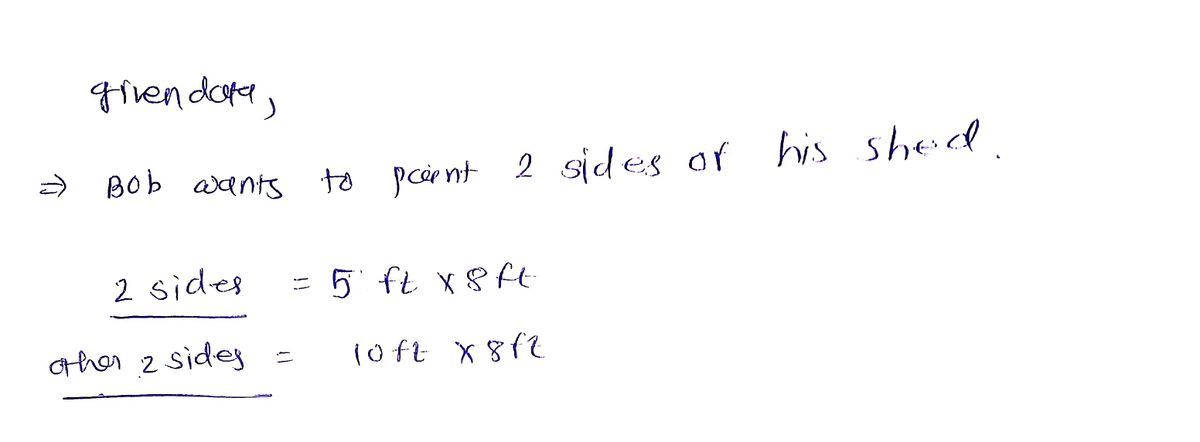 given data,
⇒ Bob wants to paint 2 sides of his shed.
2 sides = 5 ft x 8 ft
other 2 sides = 10 ft x 8 ft